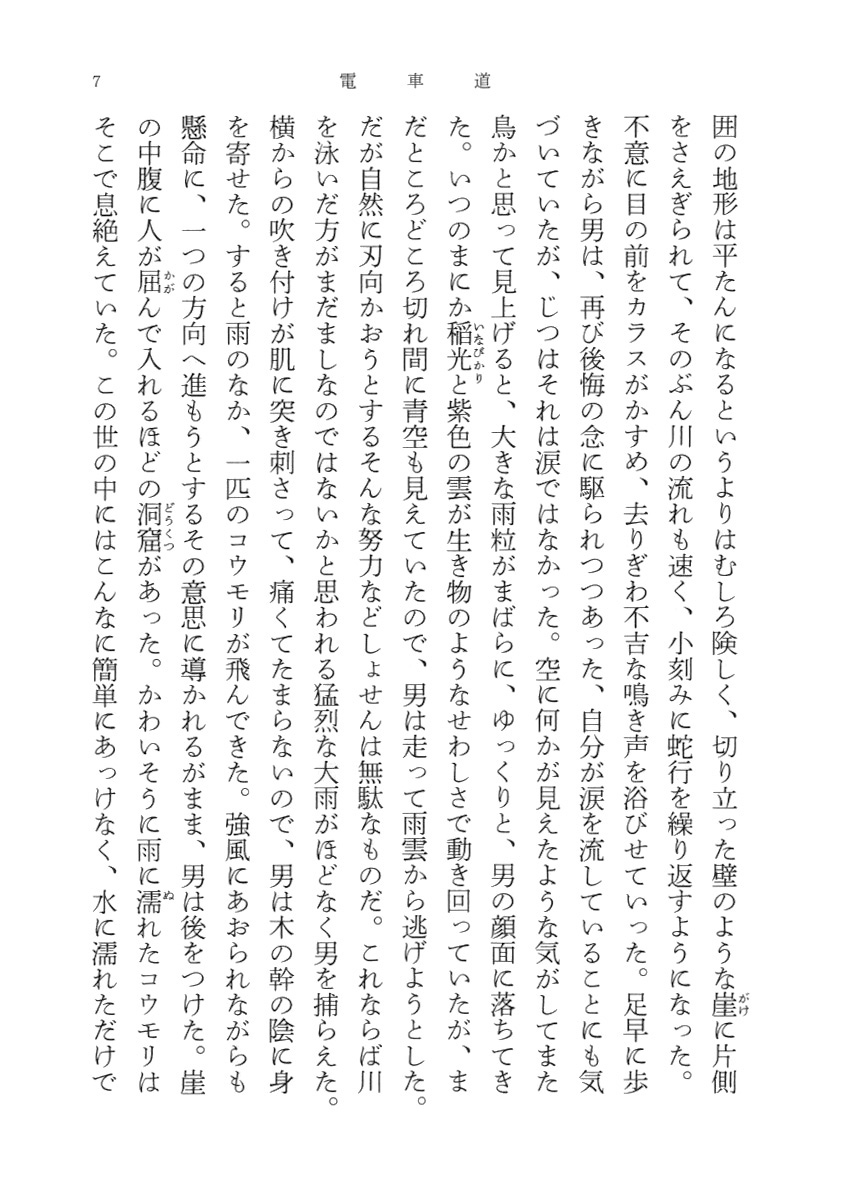 7
電車道
囲の地形は平たんになるというよりはむしろ険しく、切り立った壁のような崖に片側
をさえぎられて、そのぶん川の流れも速く、小刻みに蛇行を繰り返すようになった。
不意に目の前をカラスがかすめ、去りぎわ不吉な鳴き声を浴びせていった。足早に歩
きながら男は、再び後悔の念に駆られつつあった、自分が涙を流していることにも気
づいていたが、じつはそれは涙ではなかった。空に何かが見えたような気がしてまた
鳥かと思って見上げると、大きな雨粒がまばらに、ゆっくりと、男の顔面に落ちてき
た。いつのまにか稲光と紫色の雲が生き物のようなせわしさで動き回っていたが、ま
だところどころ切れ間に青空も見えていたので、男は走って雨雲から逃げようとした。
だが自然に刃向かおうとするそんな努力などしょせんは無駄なものだ。これならば川
を泳いだ方がまだましなのではないかと思われる猛烈な大雨がほどなく男を捕らえた。
横からの吹き付けが肌に突き刺さって、痛くてたまらないので、男は木の幹の陰に身
を寄せた。すると雨のなか、一匹のコウモリが飛んできた。強風にあおられながらも
懸命に、一つの方向へ進もうとするその意思に導かれるがまま、男は後をつけた。崖
の中腹に人が屈んで入れるほどの洞窟があった。かわいそうに雨に濡れたコウモリは
そこで息絶えていた。この世の中にはこんなに簡単にあっけなく、水に濡れただけで